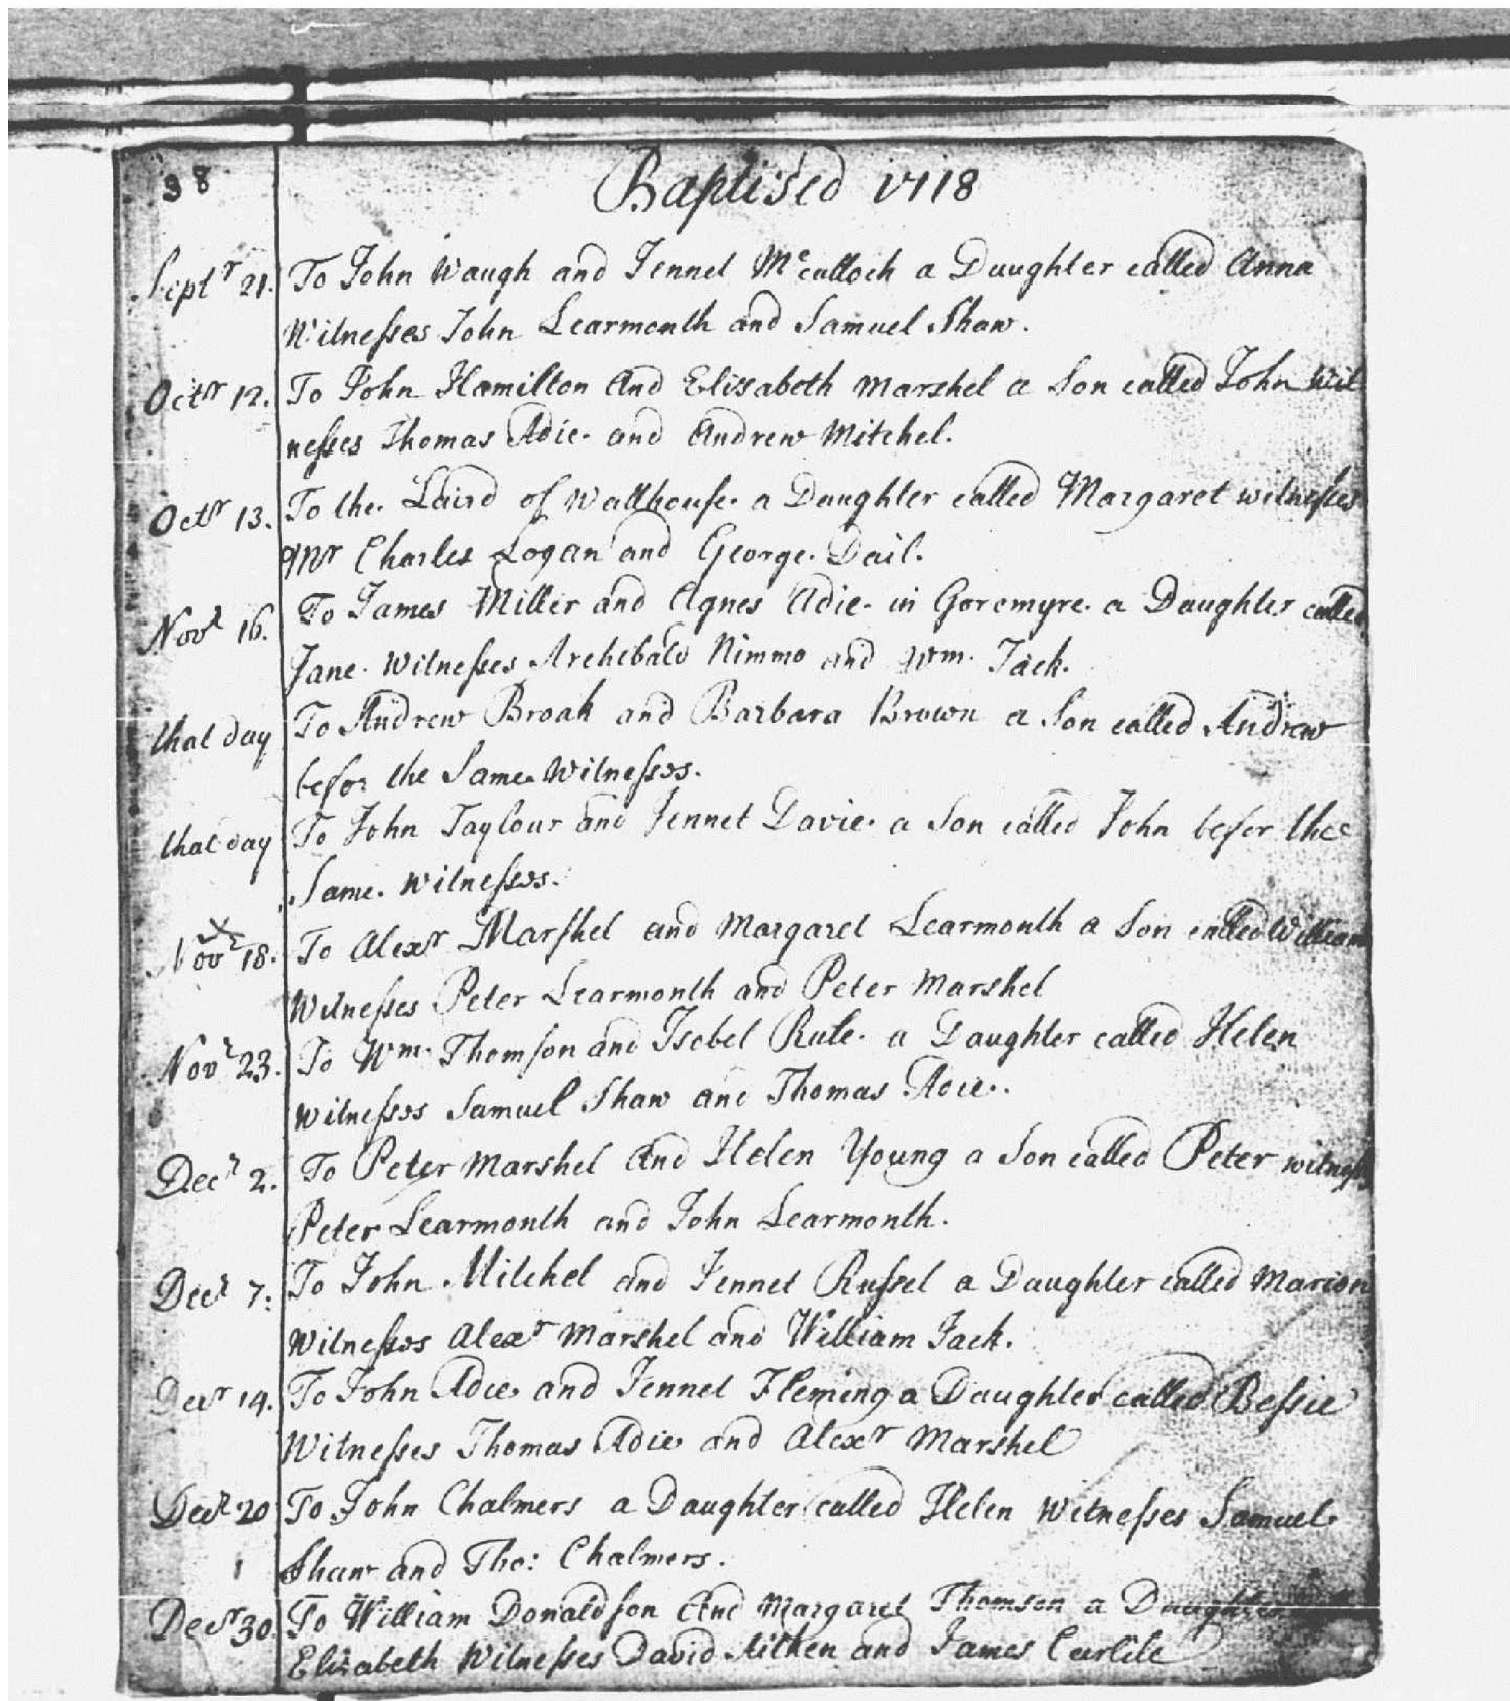 38 Baptised 1718
Septr 21. To John Waugh and Jennet Mcculloch a Daughter called Anna
Witnesses John Learmonth and Samuel Shaw.
Octr 12. To John Hamilton And Elisabeth Marshel a Son called John Wit
nesses Thomas Adie. and Andrew Mitchel.
Octr 13. To the. Laird of Wallhouse. a Daughter called Margaret witnesses
Mr Charles Logan and George. Dail.
Novr 16. To James Miller and Agnes Adie. in Goremyre. a Daughter called
Jane. Witnesses Archibald Nimmo and Wm. Jack.
that day To Andrew Broak and Barbara Brown a Son called Andrew
befor the Same Witnesses.
that day To John Taylour and Jennet Davie. a Son called John befor the
Same. Witnesses.
Novr 18. To Alexr Marshel and Margaret Learmonth a Son called William
Witnesses Peter Learmonth and Peter Marshel
Novr 23. To Wm. Thomson and Isobel Rule. a Daughter called Helen
Witnesses Samuel Shaw and Thomas Adie..
Decr 2. To Peter Marshel And Helen Young a Son called Peter witness
Peter Learmonth and John Learmonth.
Decr 7: To John Mitchel and Jennet Russel a Daughter called Marion
Witnesses Alexr Marshel and William Jack.
Decr 14. To John Adie and Jennet Fleming a Daughter called Bessie
Witnesses Thomas Adie and Alexr Marshel
Decr 20 To John Chalmers a Daughter called Helen Witnesses Samuel
Shaw and Tho: Chalmers.
Decr 30 To William Donaldson And Margaret Thomson a Daughter
Elizabeth Witnesses David Aitken and James Carlile